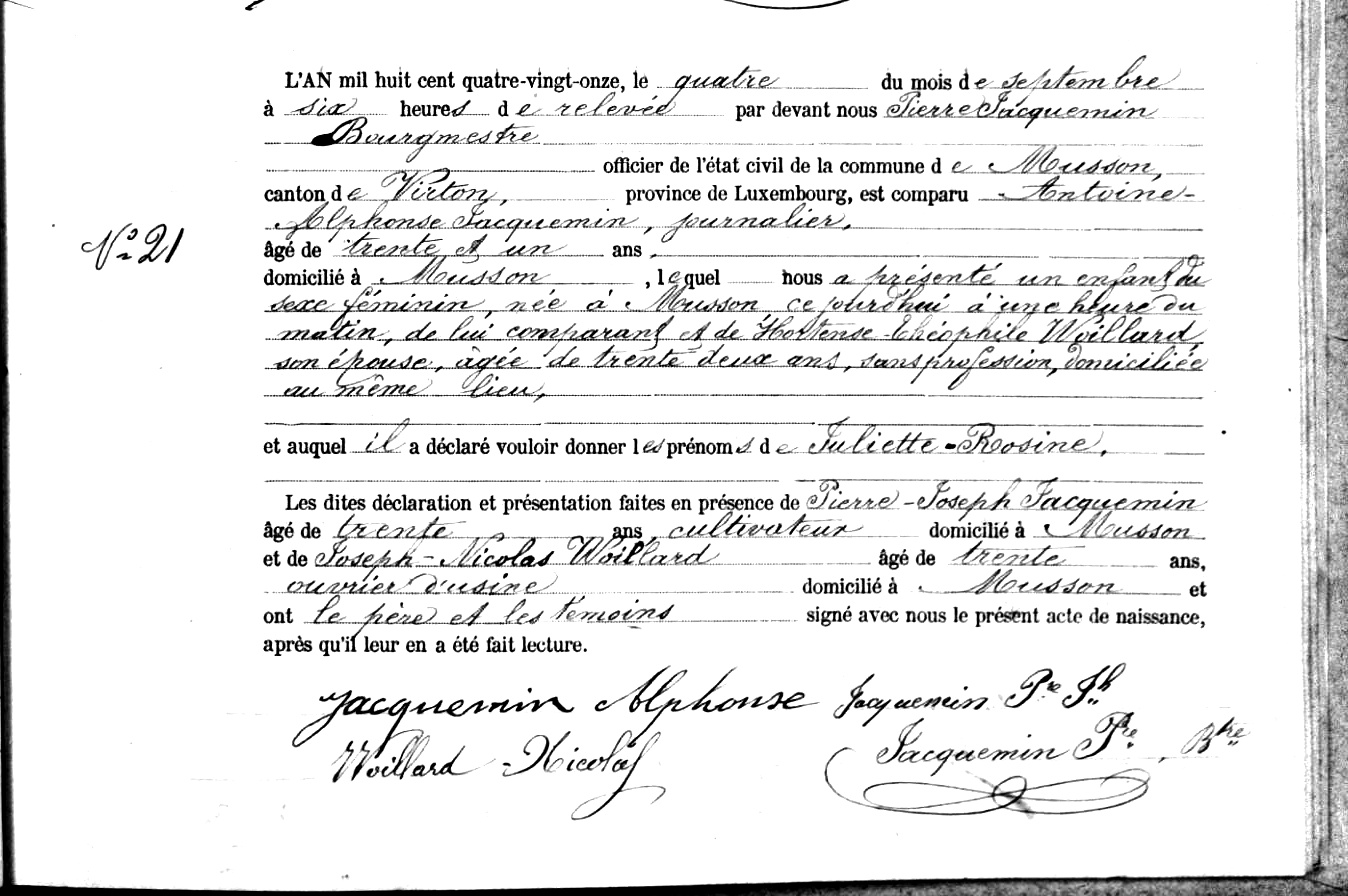 L'AN mil huit cent quatre-vingt-onze, le quatre du mois de septembre
à six heures de relevée par devant nous Pierre Jacquemin
Bourgmestre
officier de l'état civil de la commune de Musson,
canton de Virton, province de Luxembourg, est comparu Antoine-
Alphonse Jacquemin, journalier,
Nº 21
âgé de trente et un ans,
domicilié à Musson, lequel nous a présenté un enfant du
sexe féminin, née à Musson ce jourd'hui à une heure du
matin, de lui comparant et de Hortense-Théophile Woillard,
son épouse, âgée de trente deux ans, sans profession, domiciliée
au même lieu,
et auquel il a déclaré vouloir donner les prénoms de Juliette-Rosine.
Les dites déclaration et présentation faites en présence de Pierre-Joseph Jacquemin
âgé de trente ans, cultivateur domicilié à Musson
et de Joseph-Nicolas Woillard âgé de trente ans,
ouvrier d'usine domicilié à Musson et
ont le père et les témoins signé avec nous le présent acte de naissance,
après qu'il leur en a été fait lecture.
Jacquemin Alphonse Jacquemin Pre Jh
Woillard-Nicolas Jacquemin Pre, Btre